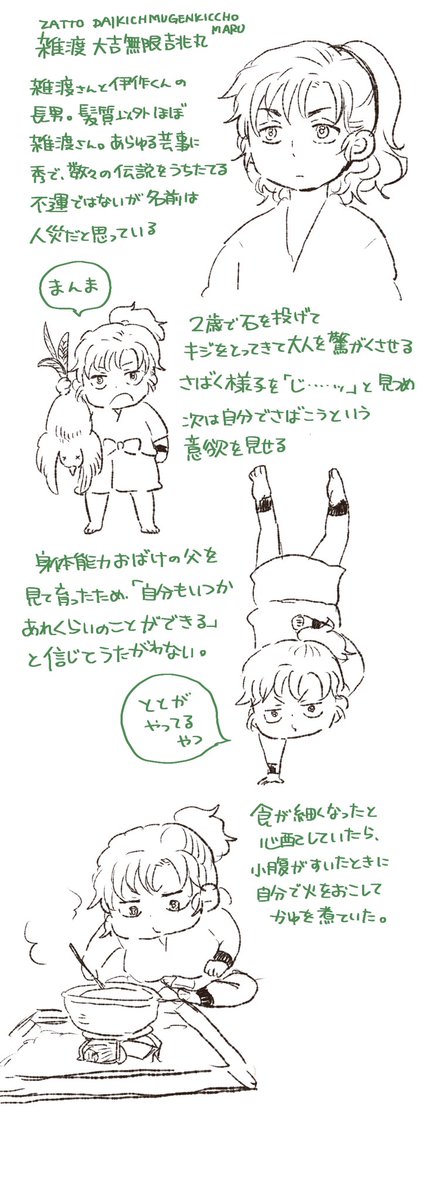 ZATTO DAIKICHMUGENKICCHO
MARU
雑渡 大吉無限吉兆丸
雑渡さんと伊作くんの
長男。髪質以外ほぼ
雑渡さん。あらゆる芸事に
秀で、数々の伝説をうちたてる
不運ではないが名前は
人災だと思っている
まんま
2歳で石を投げて
キジをとってきて大人を驚がくさせる
さばく様子を「じ……ッ」と見つめ
次は自分でさばこうという
意欲を見せる
身体能力おばけの父を
見て育ったため、「自分もいつか
あれくらいのことができる」
と信じてうたがわない。
ととが
やってる
やつ
食が細くなったと
心配していたら、
小腹がすいたときに
自分で火をおこして
かゆを煮ていた。